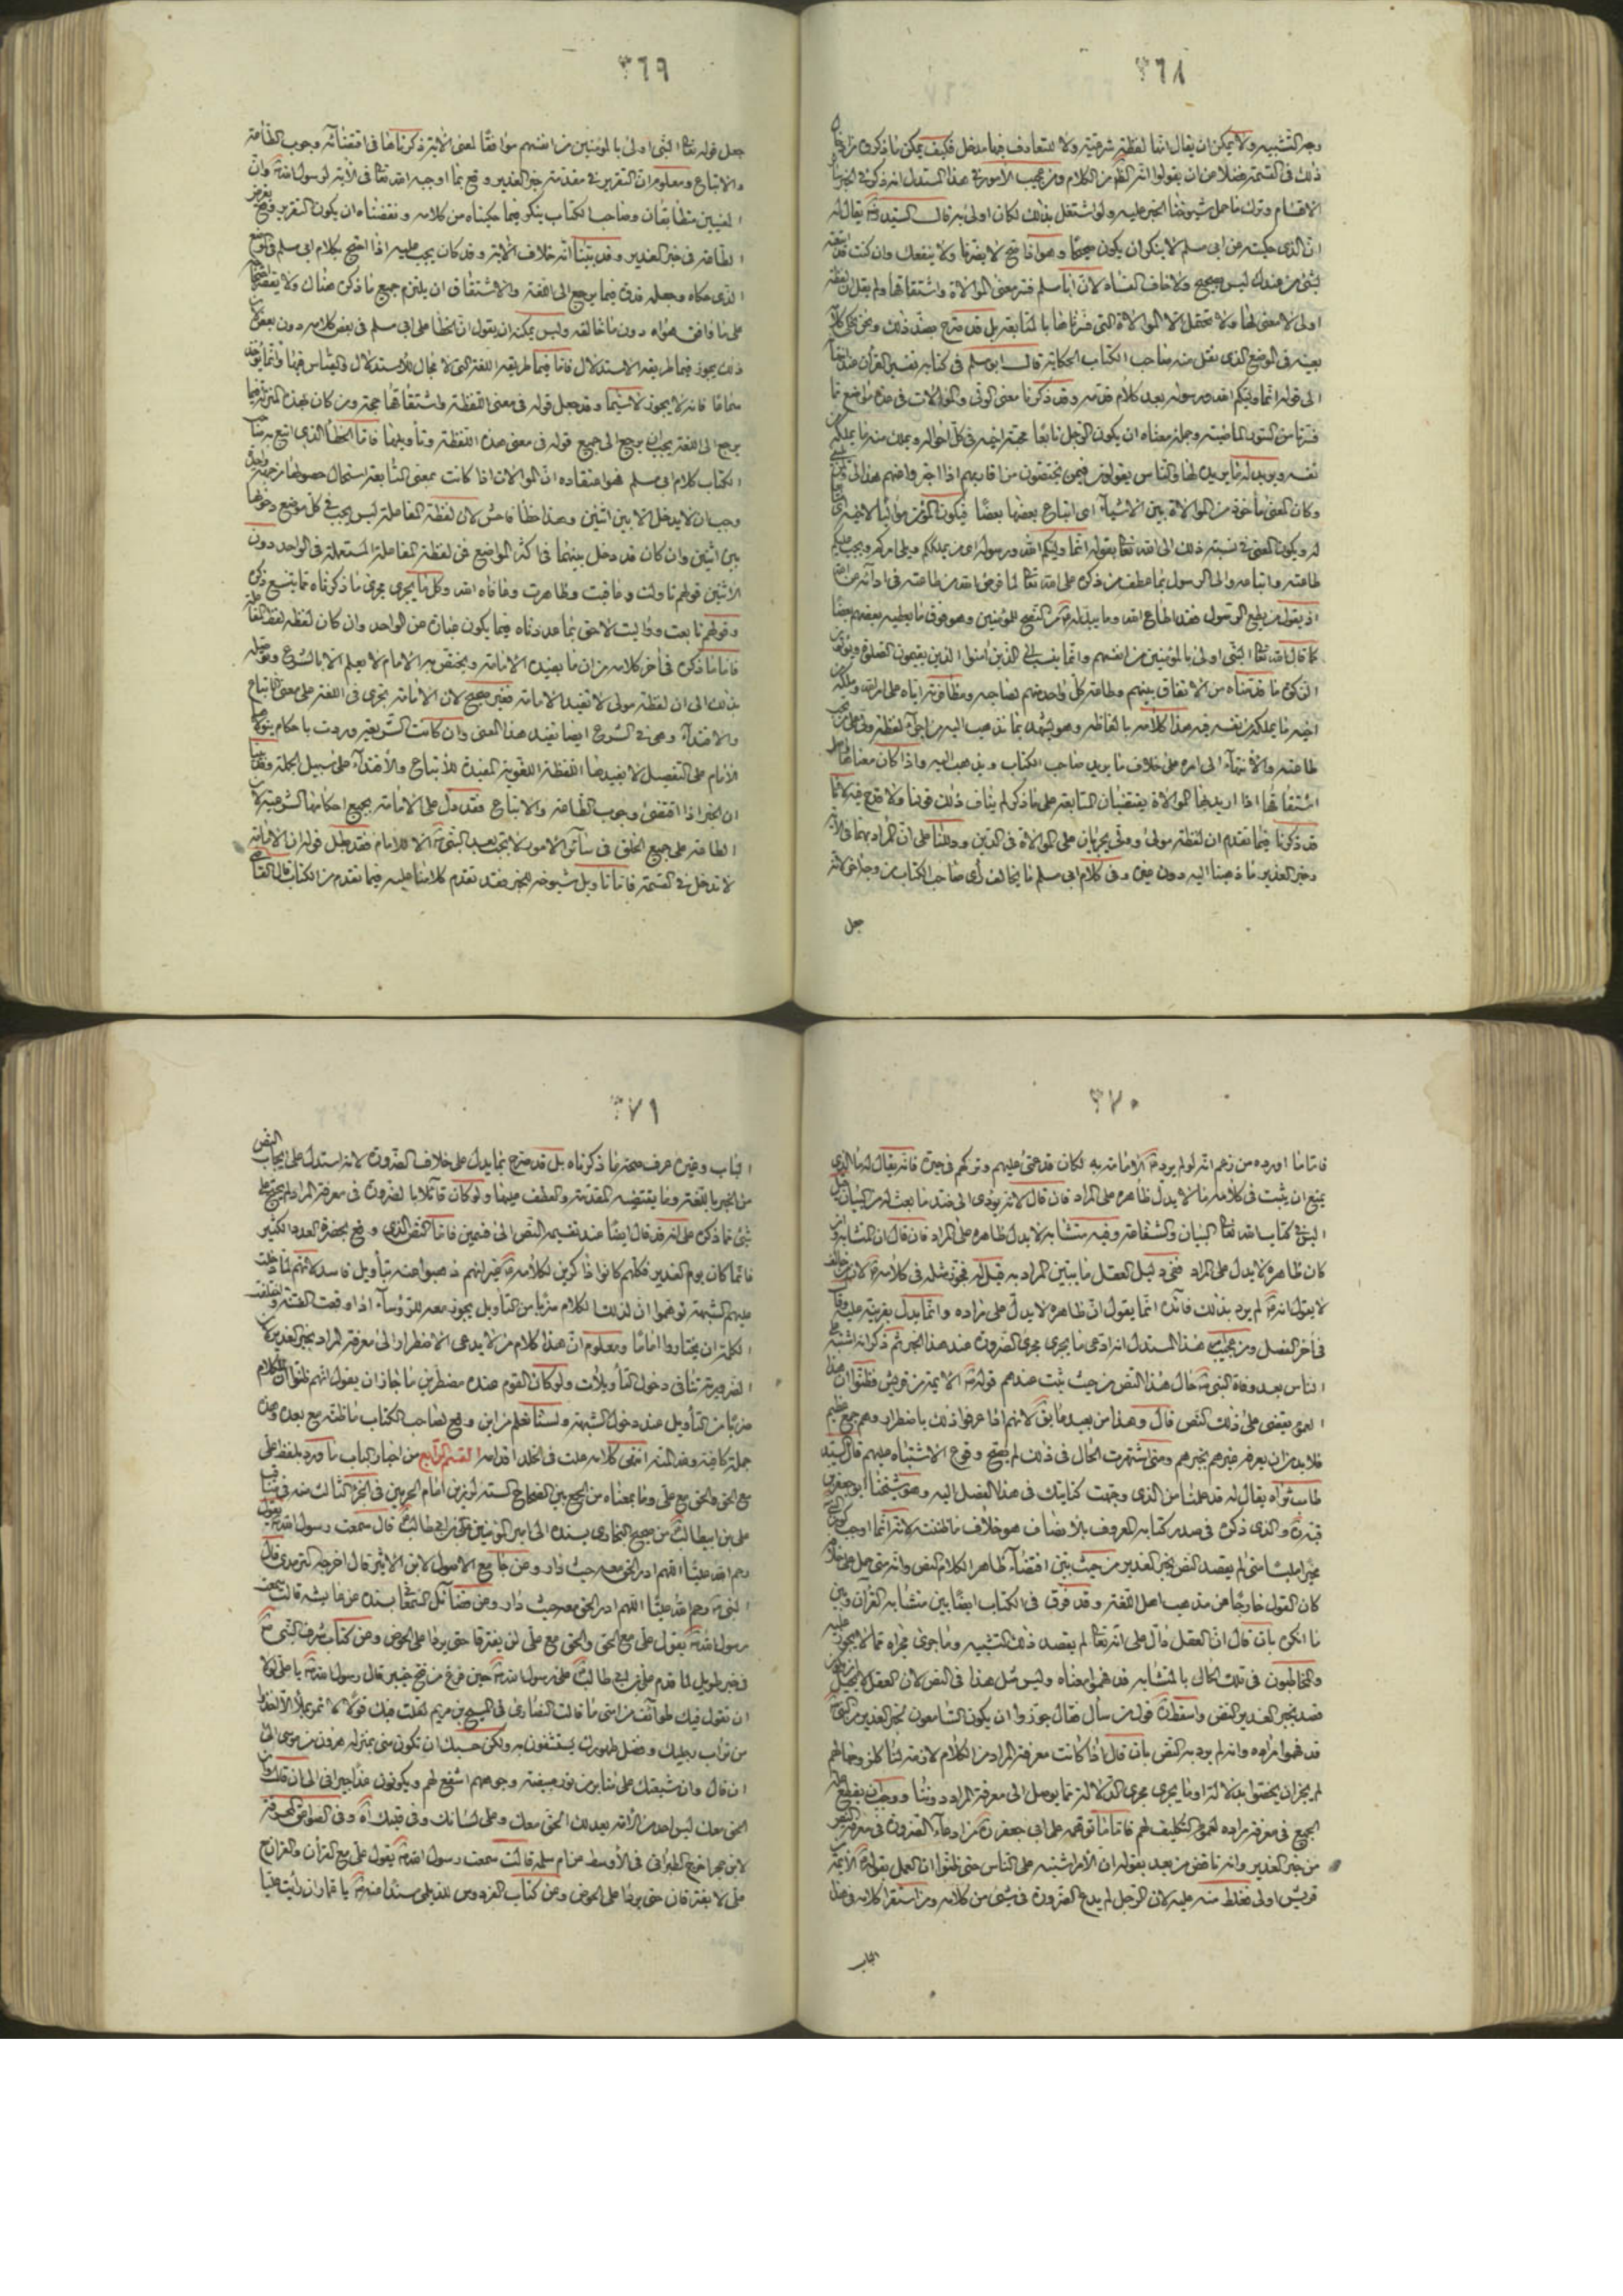 ٣٦٨
وجه التشبيه ولا يمكن ان يقال انها لفظة شرعية ولا للتعارف فيها مدخل فكيف يمكن ما ذكروه
ذلك فى القسمة فضلا عن ان يقولوا انه الظاهر من الكلام ومن عجيب الأمور ان هذا المستدل انه ذكر فى الخبر
الاقسام وترك ما حمل شيوخنا الخبر عليه ولو اشتغل بذلك لكان اولى به قال السيد يقال له
ان الذى حكيته عن ابى مسلم لا ينكر ان يكون صحيحا وهو اذا صح لا يضرنا ولا ينفعك وان كنت قد
لشئ من عندك ليس بصحيح ولا خاف الفساد لان ابا مسلم فسر معنى الموالاة واشتقاقها ولم يقل ان لفظة
اولى لا معنى لها ولا تحتمل الا الموالاة التى فسرناها بالمتابعة بل قد صرح بضد ذلك ونحن نحكى كلامه
بعينه فى الموضع الذى نقل منه صاحب الكتاب الحكاية قال ابو مسلم فى كتابه تفسير القرآن عند
الى قوله انما وليكم الله ورسوله بعد كلام قدمه وقد ذكرنا معنى الولى والولاية فى عدة مواضع مما
فسرنا من السور الماضية وجملة معناه ان يكون الرجل تابعا محبة اخيه فى كل احواله ويملك منه ما يملكه من
نفسه ويريد له ما يريد لها والناس يقولون فيمن يختصون من اقاربهم
وكان المعنى مأخوذ من الموالاة بين الاشياء اى اتباع بعضها بعضا فيكون المؤمن مواليا لاخيه
له ويكون المعنى فى نسبة ذلك الى الله تعالى بقوله انما وليكم الله ورسوله اى من يملككم ويلى امركم ويجب عليكم
طاعته واتباعه والى الرسول بما عطف من ذكره على الله تعالى لما فرض الله من طاعته فى ادائه عن الله
اذ يقول من يطع الرسول فقد اطاع الله وما يبذله من النصح للمؤمنين وهو فوق ما يعطيه بعضهم بعضا
كما قال الله تعالى النبى اولى بالمؤمنين من انفسهم وانما ينسب الى الذين آمنوا الذين يقيمون الصلوة ويؤتون
الزكوة ما قدمناه من الاتفاق بينهم وطاعة كل واحد منهم لصاحبه ومظافرته اياه على امر الله وملكه من
اخيه ما يملك من نفسه فهذا كلامه بالفاظه وهو يشهد بما نذهب اليه من اجراء لفظة ولى على من يجب
طاعته والانتهاء الى امره على خلاف ما يريد صاحب الكتاب ويذهب اليه واذا كان معناها
اشتقاقها اذا اريد بها الموالاة يقتضيان المتابعة على ما ذكر لم يناف ذلك قولنا ولا قدح فيه لانا
قد ذكرنا فيما تقدم ان لفظة مولى وولى يجريان على الموالاة فى الدين ودللنا على ان المراد بهما فى الآية
وخبر الغدير ما ذهبنا اليه دون غيره وفى كلام ابى مسلم ما يخالف رأى صاحب الكتاب من وجه آخر لانه
جعل
٣٦٩
جعل قوله تعالى النبى اولى بالمؤمنين من انفسهم موافقا لمعنى الآية ذكرناها فى اقتضائه وجوب الطاعة
والاتباع ومعلوم ان التقرير فى مقدمة خبر الغدير وقع بما اوجبه الله تعالى فى الآية لرسول الله وان
المعنيين متطابقان وصاحب الكتاب ينكر فيما حكيناه من كلامه ونقضناه ان يكون التقرير وقع بفرض
الطاعة فى خبر الغدير وقد بينا انه خلاف الآية وقد كان يجب عليه اذا احتج بكلام ابى مسلم فى الموضع
الذى حكاه وجعله قدوة فيما يرجع الى اللغة والاشتقاق ان يلتزم جميع ما ذكره هناك ولا يقتصر
على ما وافق هواه دون ما خالفه وليس يمكنه ان يقول ان الخطأ على ابى مسلم فى بعض كلامه دون بعض لان
ذلك يجوز فيما طريقه الاستدلال فاما فيما طريقه اللغة التى لا مجال للاستدلال والقياس فيها وانما يؤخذ
سماعا فانه لا يجوز لا سيما وقد جعل قوله فى معنى اللفظة واشتقاقها حجة ومن كان بهذه المنزلة فيما
يرجع الى اللغة يجب ان يرجع الى جميع قوله فى معنى هذه اللفظة وتأويلها فاما الخطأ الذى اتبع صاحب
الكتاب كلام ابى مسلم فهو اعتقاده ان الموالاة اذا كانت بمعنى المتابعة استحال حصولها من جهة واحدة
ووجب ان لا يدخل الا بين اثنين وهذا خطأ فاحش لان لفظة المفاعلة ليس يجب فى كل موضع دخولها
بين اثنين وان كان قد دخل بينهما فى اكثر المواضع فمن لفظة المفاعلة المستعملة فى الواحد دون
الاثنين قولهم ناولت وعاقبت وظاهرت وعافاه الله وكل ما يجرى مجرى ما ذكرناه مما يتسع ذكره
وقولهم تابعت وواليت لاحق بما عددناه فيما يكون عبارة عن الواحد وان كان لفظه لفظ المفاعلة
فاما ما ذكره فى آخر كلامه من ان ما يفيده الامامة ويختص به الامام لا يعلم الا بالشرع
بذلك الى ان لفظة مولى لا تفيد الامامة فغير صحيح لان الامامة يجرى فى اللغة على معنى الاتباع
والاقتداء وهى فى الشرع ايضا تفيد هذا المعنى وان كانت الشريعة وردت باحكام يتولاها
الامام على التفصيل لا يفيدها اللفظة اللغوية المفيدة للاتباع والاقتداء على سبيل الجملة وقد بينا
ان الخبر اذا اقتضى وجوب الطاعة والاتباع فقد دل على الامامة بجميع احكامها الشرعية لان
الطاعة على جميع الخلق فى سائر الامور لا تجب بعد النبى الا للامام فقد بطل قوله ان الامامة
لا تدخل فى القسمة فاما تأويل شيوخه الخبر فقد تقدم كلامنا عليه فيما تقدم من الكتاب
٣٧٠
فاما ما اورده من زعم انه لو لم يرد الامامة به لكان قد عمى عليهم وتركهم فى حيرة فانه يقال له ما الذى
يمنع ان يثبت فى كلامه ما لا يدل ظاهره على المراد فان قال لانه يؤدى الى ضد ما بعث له من البيان قيل
اليس فى كتاب الله تعالى البيان والشفاء وفيه متشابه لا يدل ظاهره على المراد فان قال ان المتشابه وان
كان ظاهره لا يدل على المراد ففى دليل العقل ما يبين المراد به قيل له فجوز مثله فى كلامه لان من خالف
لا يقول انه لم يرد بذلك فائدة انما يقول ان ظاهره لا يدل على مراده وانما يدل بقرينة عليه وقال
فى آخر الفصل ومن عجيب هذا المستدل انه ادعى ما يجرى مجرى الضرورة عند هذا الخبر ثم ذكر انه اشتبه على
الناس بعد وفاة النبى حال هذا النص من حيث ثبت عندهم قوله الائمة من قريش فظنوا ان هذا
العموم يقضى على ذلك النص قال وهذا من بعيد ما يقع لانهم اذا عرفوا ذلك باضطرار وهم جمع عظيم
فلا بد من ان يعرفه غيرهم بخبرهم ومتى اشتهرت الحال فى ذلك لم يصح وقوع الاشتباه عليهم قال السيد
طاب ثراه يقال له قد علمنا من الذى وجهت كنايتك فى هذا الفصل اليه وهو شيخنا ابو جعفر
والذى ذكره فى صدر كتابه المعروف بالانصاف هو خلاف ما ظننته لانه انما اوجب
متى لم يقصد النص بخبر الغدير من حيث بين اقتضاء ظاهر الكلام النص وانه متى حمل على خلافه
كان القول خارجا عن مذهب اهل اللغة وقد فرق فى الكتاب ايضا بين متشابه القرآن وبين
ما انكره بان قال ان العقل دال على انه تعالى لم يقصد ذلك التشبيه وما جرى مجراه مما لا يجوز عليه
والمخاطبون فى تلك الحال بالمتشابه قد فهموا معناه وليس مثل هذا فى النص لان العقل لا يحيل
قصد بخبر الغدير النص واسقط قول من سأل فقال جوزوا ان يكون السامعون لخبر الغدير من النبى
قد فهموا مراده وانه لم يرد به النص بان قال اذا كانت معرفة المراد من الكلام لازمة لنا كلزومها لهم
لم يجز ان يختصوا بدلالة او ما يجرى مجرى الدلالة مما يوصل الى معرفة المراد دوننا ووجب ان يقطع عذر
الجميع فى معرفة مراده لعموم التكليف لهم فاما ما توهمه على ابى جعفر من ادعاء الضرورة فى معرفة النص
من خبر الغدير وانه ناقض من بعد بقوله ان الامر اشتبه على الناس حتى ظنوا ان العمل بقوله الائمة من
قريش اولى فغلط منه عليه لان الرجل لم يدع الضرورة فى شئ من كلامه ومن استقرأ كلامه فى هذا
الكتاب
٣٧١
الكتاب وغيره عرف صحة ما ذكرناه بل قد صرح بما يدل على خلاف الضرورة لانه استدل على ايجاب النص
من الخبر باللغة وما يقتضيه المقدمة والعطف عليها ولو كان قائلا بالضرورة فى معرفة المراد لم يحتج الى
شئ مما ذكره على انه قد قال ايضا عند تقسيمه النص الى قسمين فاما النص الذى وقع بحضرة العدد الكثير
فانما كان يوم الغدير فكلهم كانوا ذاكرين لكلامه غير انهم ذهبوا عنه بتأويل فاسد كانهم لما دخلت
عليهم الشبهة توهموا ان لذلك الكلام ضربا من التأويل يجوز معه للرؤساء اذا وقعت الفتنة واختلفت
الكلمة ان يختاروا اماما ومعلوم ان هذا كلام من لا يدعى الاضطرار الى معرفة المراد بخبر الغدير لان
الضرورة تنافى دخول التأويلات ولو كان القوم عنده مضطرين ما جاز ان يقول انهم ظنوا ان للكلام
ضربا من التأويل عند دخول الشبهة ولسنا نعلم من اين وقع لصاحب الكتاب ما ظنه مع بعده وهذه
جملة كافية ولله المنة انتهى كلامه علت فى الخلد اقدامه القسم الرابع من اخبار الباب ما ورد بلفظ على
مع الحق والحق مع على وما بمعناه من الجمع بين الصحاح الستة لرزين امام الحرمين فى الجزء الثالث منه فى مناقب
على بن ابيطالب من صحيح البخارى بسنده الى امير المؤمنين على بن ابى طالب قال سمعت رسول الله يقول
رحم الله عليا اللهم ادر الحق معه حيث دار وعن جامع الاصول لابن الاثير قال اخرجه الترمذى قال
النبى رحم الله عليا اللهم ادر الحق معه حيث دار وعن فضائل السمعانى بسنده عن عايشه قالت سمعت
رسول الله يقول على مع الحق والحق مع على لن يفترقا حتى يردا على الحوض وعن كتاب شرف النبى
فى خبر طويل لما قدم على بن ابى طالب على رسول الله حين فرغ من فتح خيبر قال رسول الله يا على لولا
ان تقول فيك طوائف من امتى ما قالت النصارى فى المسيح بن مريم لقلت فيك قولا لا تمر بملأ الا اخذوا
من تراب رجليك وفضل طهورك يستشفون به ولكن حسبك ان تكون منى بمنزلة هرون من موسى الى
ان قال وان شيعتك على منابر من نور مبيضة وجوههم اشفع لهم ويكونون غدا جيرانى الى ان قال وان
الحق معك ليس احد من الامة يعدلك الحق معك وعلى لسانك وفى قلبك وفى الصواعق المحرقة
لابن حجر اخرج الطبرانى فى الاوسط عن ام سلمة قالت سمعت رسول الله يقول على مع القرآن والقرآن مع
على لا يفترقان حتى يردا على الحوض وعن كتاب الفردوس للديلمى مسندا عنه يا عمار ان رأيت عليا